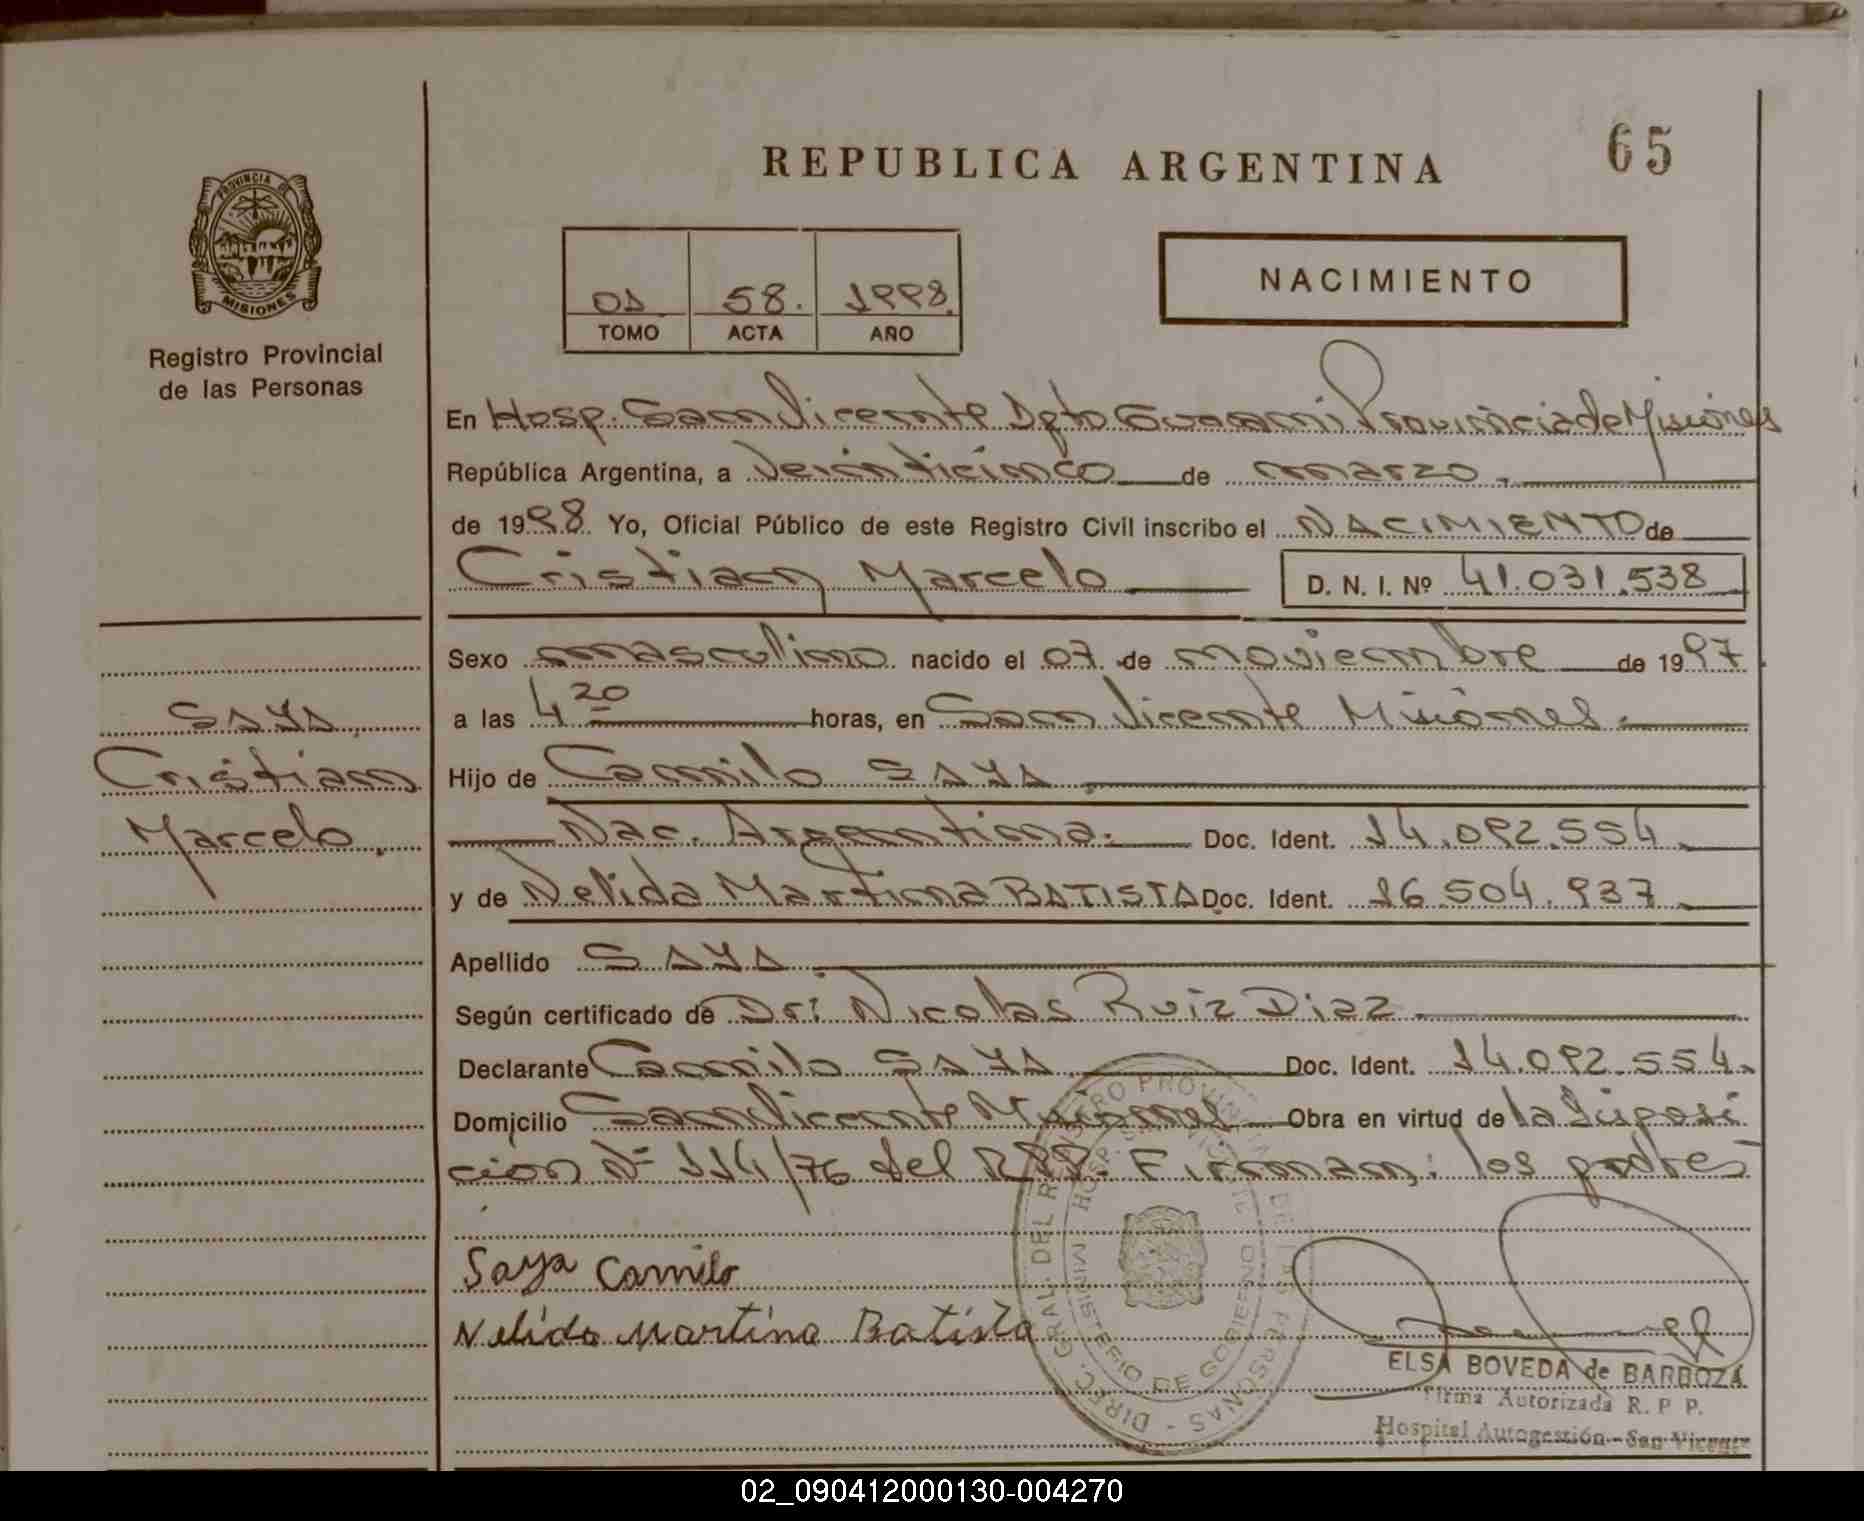 65
REPUBLICA ARGENTINA
PROVINCIA DE
MISIONES
Registro Provincial
de las Personas
01 58. 1998.
TOMO ACTA AÑO
NACIMIENTO
En Hosp. San Vicente Dpto Guarani Provincia de Misiones
República Argentina, a Veinticinco de marzo.
de 1998. Yo, Oficial Público de este Registro Civil inscribo el NACIMIENTO de
Cristian Marcelo D. N. I. Nº 41.031.538
Sexo masculino nacido el 07 de noviembre de 1997
a las 4 20 horas, en San Vicente Misiones.
Hijo de Camilo SAYA
Nac. Argentina. Doc. Ident. 14.092.554
y de Nelida Martina BATISTA Doc. Ident. 16.504.937
Apellido SAYA
Según certificado de Dr: Nicolas Ruiz Diaz
Declarante Camilo SAYA Doc. Ident. 14.092.554.
Domicilio San Vicente Misiones Obra en virtud de la Disposi
cion Nº 114/76 del RPP. Firman: los padres
SAYA
Cristian
Marcelo.
Saya Camilo
Nelida Martina Batista
DIREC. GRAL. DEL REGISTRO PROVINCIAL DE LAS PERSONAS -
MINISTERIO DE GOBIERNO
HOSP. SAN VICENTE
ELSA BOVEDA de BARBOZA
Firma Autorizada R. P P.
Hospital Autogestión - San Vicente
02_090412000130-004270